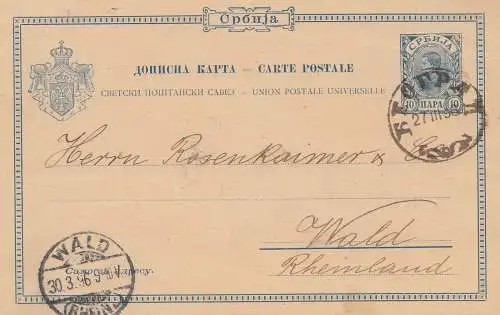 Србија
СРБИЈА
ДОПИСНА КАРТА – CARTE POSTALE
СВЕТСКИ ПОШТАНСКИ САВЕЗ – UNION POSTALE UNIVERSELLE
10 ПАРА 10
27 III 96
Herrn Rosenkaimer & C
Wald
Rheinland
WALD
30.3.96
(RHEINL
Само за адресу.